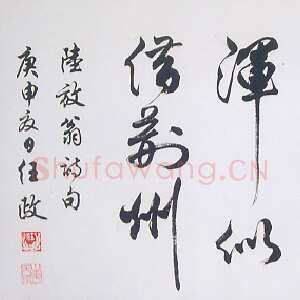 渾似
借荊州
陸放翁詩句
庚申夏日任政
Shufawang.CN